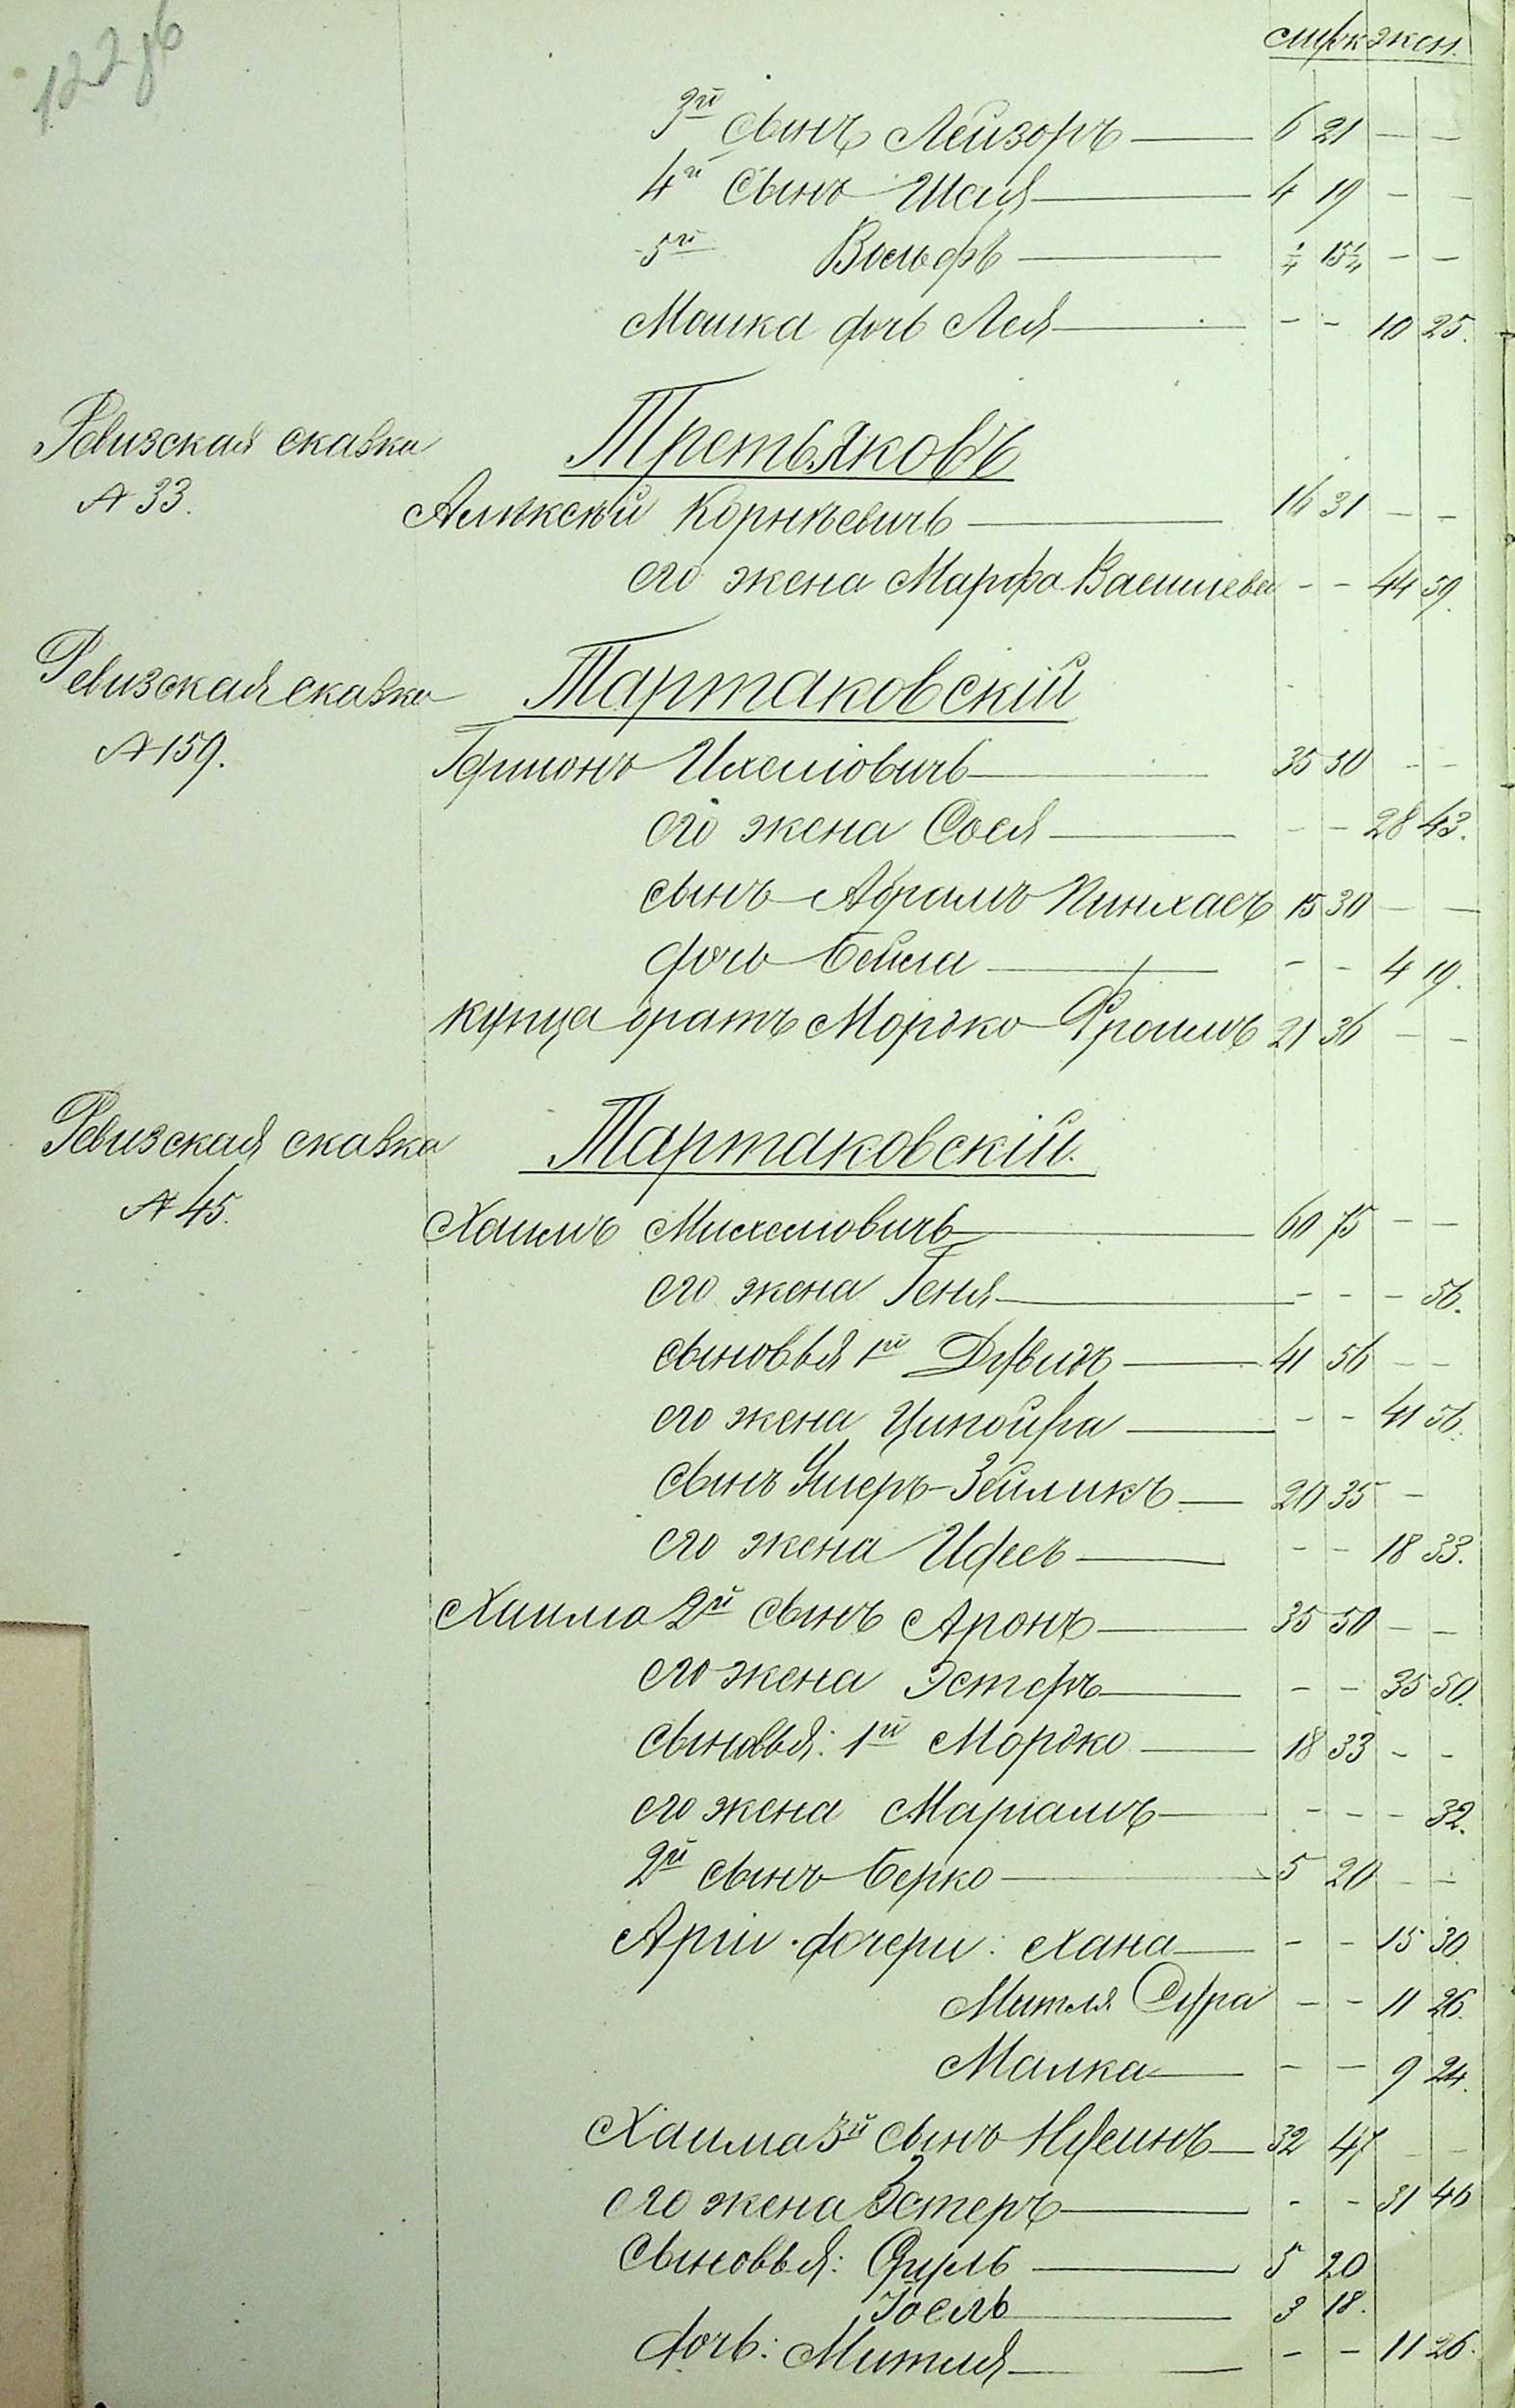 122 об
муж жен.
3й сынъ Лейзоръ — 6 21 — —
4й сынъ Шая — 4 19 — —
5й Вольфъ — ¼ 15¼ — —
Мошка дочь Лея — — — 10 25.
Ревизская сказка Третьяковъ
№ 33.
Алѣксѣй Корнѣевичъ — 16 31 — —
его жена Марфа Васильева — — 44 59.
Ревизская сказка Тартаковскій
№ 159.
Гершонъ Ихелiовичъ — 35 50 — —
его жена Сося — — — 28 43.
сынъ Абрамъ Пинхасъ 15 30 — —
дочь Бейла — — — 4 19.
купца братъ Мордко Фроимъ 21 36 — —
Ревизская сказка Тартаковскій.
№ 45.
Хаимъ Михелiовичъ — 60 75 — —
его жена Геня — — — — 56.
сыновья 1й Дувидъ — 41 56 — —
его жена Ципойра — — — 41 56.
сынъ Ушеръ-Зейликъ — 20 35 —
его жена Идесъ — — — 18 33.
Хаима 2й сынъ Аронъ — 35 50 — —
его жена Эстеръ — — — 35 50.
сыновья: 1й Мордко — 18 33 — —
его жена Марiамъ — — — — 32.
2й сынъ Берко — 5 20 — —
Арiи дочери: Хана — — — 15 30.
Митля Сура — — 11 26.
Малка — — — 9 24.
Хаима 3й сынъ Нусинъ — 32 47 — —
его жена Эстеръ — — — 31 46
сыновья: Сруль — 5 20
Iоель — 3 18.
дочь: Митля — — — 11 26.